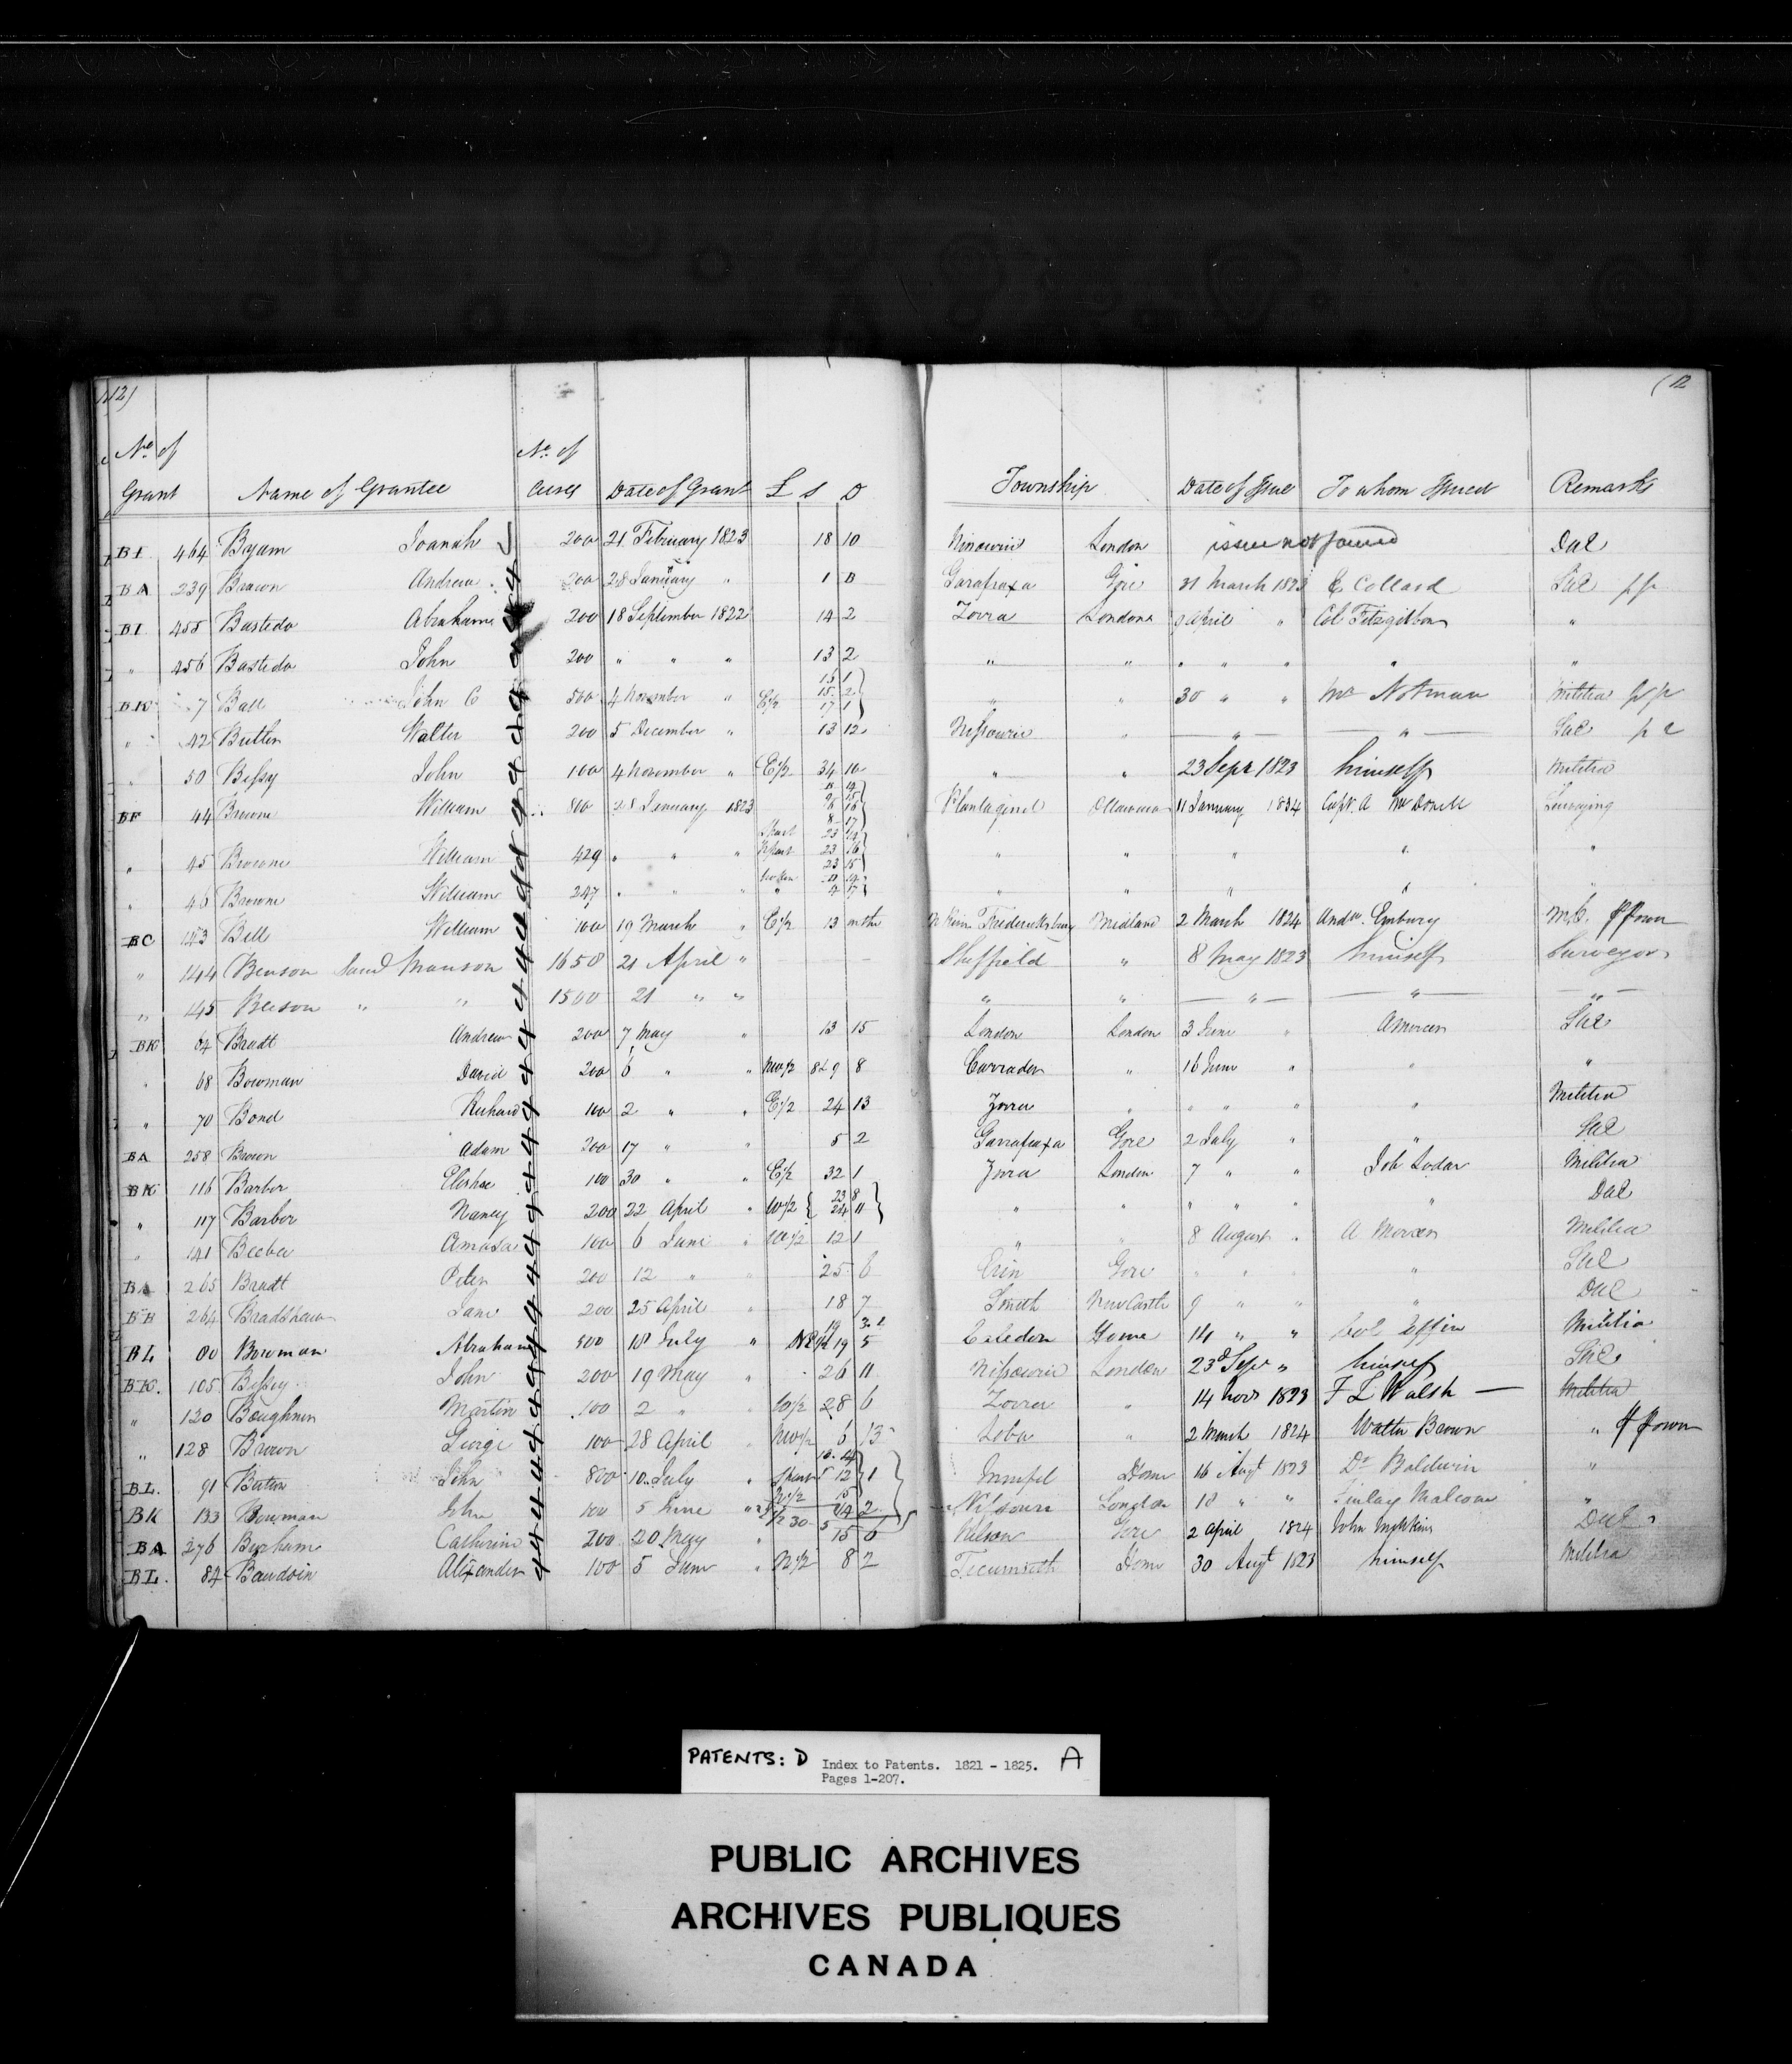 12) (12
No. of No. of
Grant Name of Grantee Acres Date of Grant £ s D Township Date of Issue To whom Issued Remarks
BI 464 Byam Joanah 200 21 February 1823 18 10 London issue not found Dal
BA 239 Brown Andrew 200 28 January " 1 B Garafraxa Gore 31 March 1823 E Collard Sal pp
BI 455 Bastedo Abraham 200 18 September 1822 14 2 Zorra London 9 April " Col Fitzgibbon "
" 456 Bastedo John 200 " " " 13 2 " " " " " " "
BK 7 Ball John C 500 4 November " E 1/2 15 2 17 1 " " 30 " " Mr Notman Militia pp
" 42 Walter 200 5 December " 13 12 Nissouri " " " Sal
" 50 Bessy John 100 4 November " E 1/2 34 10 " " 23 Sept 1823 himself Militia
BF 44 Browne William 800 28 January 1823 Plantaginet Ottawa 11 January 1834 Capt. A McDonell Surveying
" 45 Browne William 429 " " " " " " " "
" 46 Browne William 247 " " " " " " "
BC 143 Bell William 100 19 March " E 1/2 13 Fredericksburg Midland 2 March 1824 Andw. Embury
" 144 Benson Saml Manson 1650 21 April " Sheffield " 8 May 1823 himself Surveyor
" 145 Benson " " 1500 21 " " " " " " "
BK 64 Bradt Andrew 200 7 May " 13 15 London London 3 June " A Mercer Sal
" 68 Bowman David 200 6 " " 8 & 9 8 Carradoc " 16 June " " "
" 70 Bond Richard 100 2 " " E 1/2 24 13 Zorra " " " " " Militia
BA 258 Brown Adam 200 17 " " 5 2 Garrafraxa Gore 2 July " " Sal
BK 116 Barber Elishae 100 30 " " E 1/2 32 1 Zorra London 7 " " Job Lodar Militia
" 117 Barber Nancy 200 22 April " W 1/2 23 8 24 11 " " " " " " Dal
" 141 Beebe Amasa 100 6 June " W 1/2 12 1 " " 8 August " A Mercer Militia
BA 265 Bradt Peter 200 12 " " 25 6 Erin Gore " " " " Sal
BH 264 Bradshaw Jane 200 25 April " 18 7 Smith NewCastle 9 " " " Dal
BL 80 Bowman Abraham 500 10 July " 19 5 Caledon Home 14 " " Militia
BK. 105 Bessey John 200 19 May " 26 11 Nissouri London 23d Sept " himself Sal
" 120 Boughner Martin 100 2 " " W 1/2 28 6 Zorra " 14 Novr 1823 F L Walsh Militia
" 128 Brown George 100 28 April " 6 13 Loba " 2 March 1824 Walter Brown "
BL. 91 John 800 10 July " 12 1 Innisfil Home 16 Augt 1823 Dr Baldwin "
BK 133 Bowman John 100 5 June " Nissouri London 18 " " Finlay Malcom "
BA 276 Catherine 200 20 May " 15 6 Nelson Gore 2 April 1824 John
BL. 84 Baudoin Alexander 100 5 June " N 1/2 8 2 Tecumseth Home 30 Augt 1823 himself Militia
PATENTS: D Index to Patents. 1821 - 1825. A
Pages 1-207.
PUBLIC ARCHIVES
ARCHIVES PUBLIQUES
CANADA